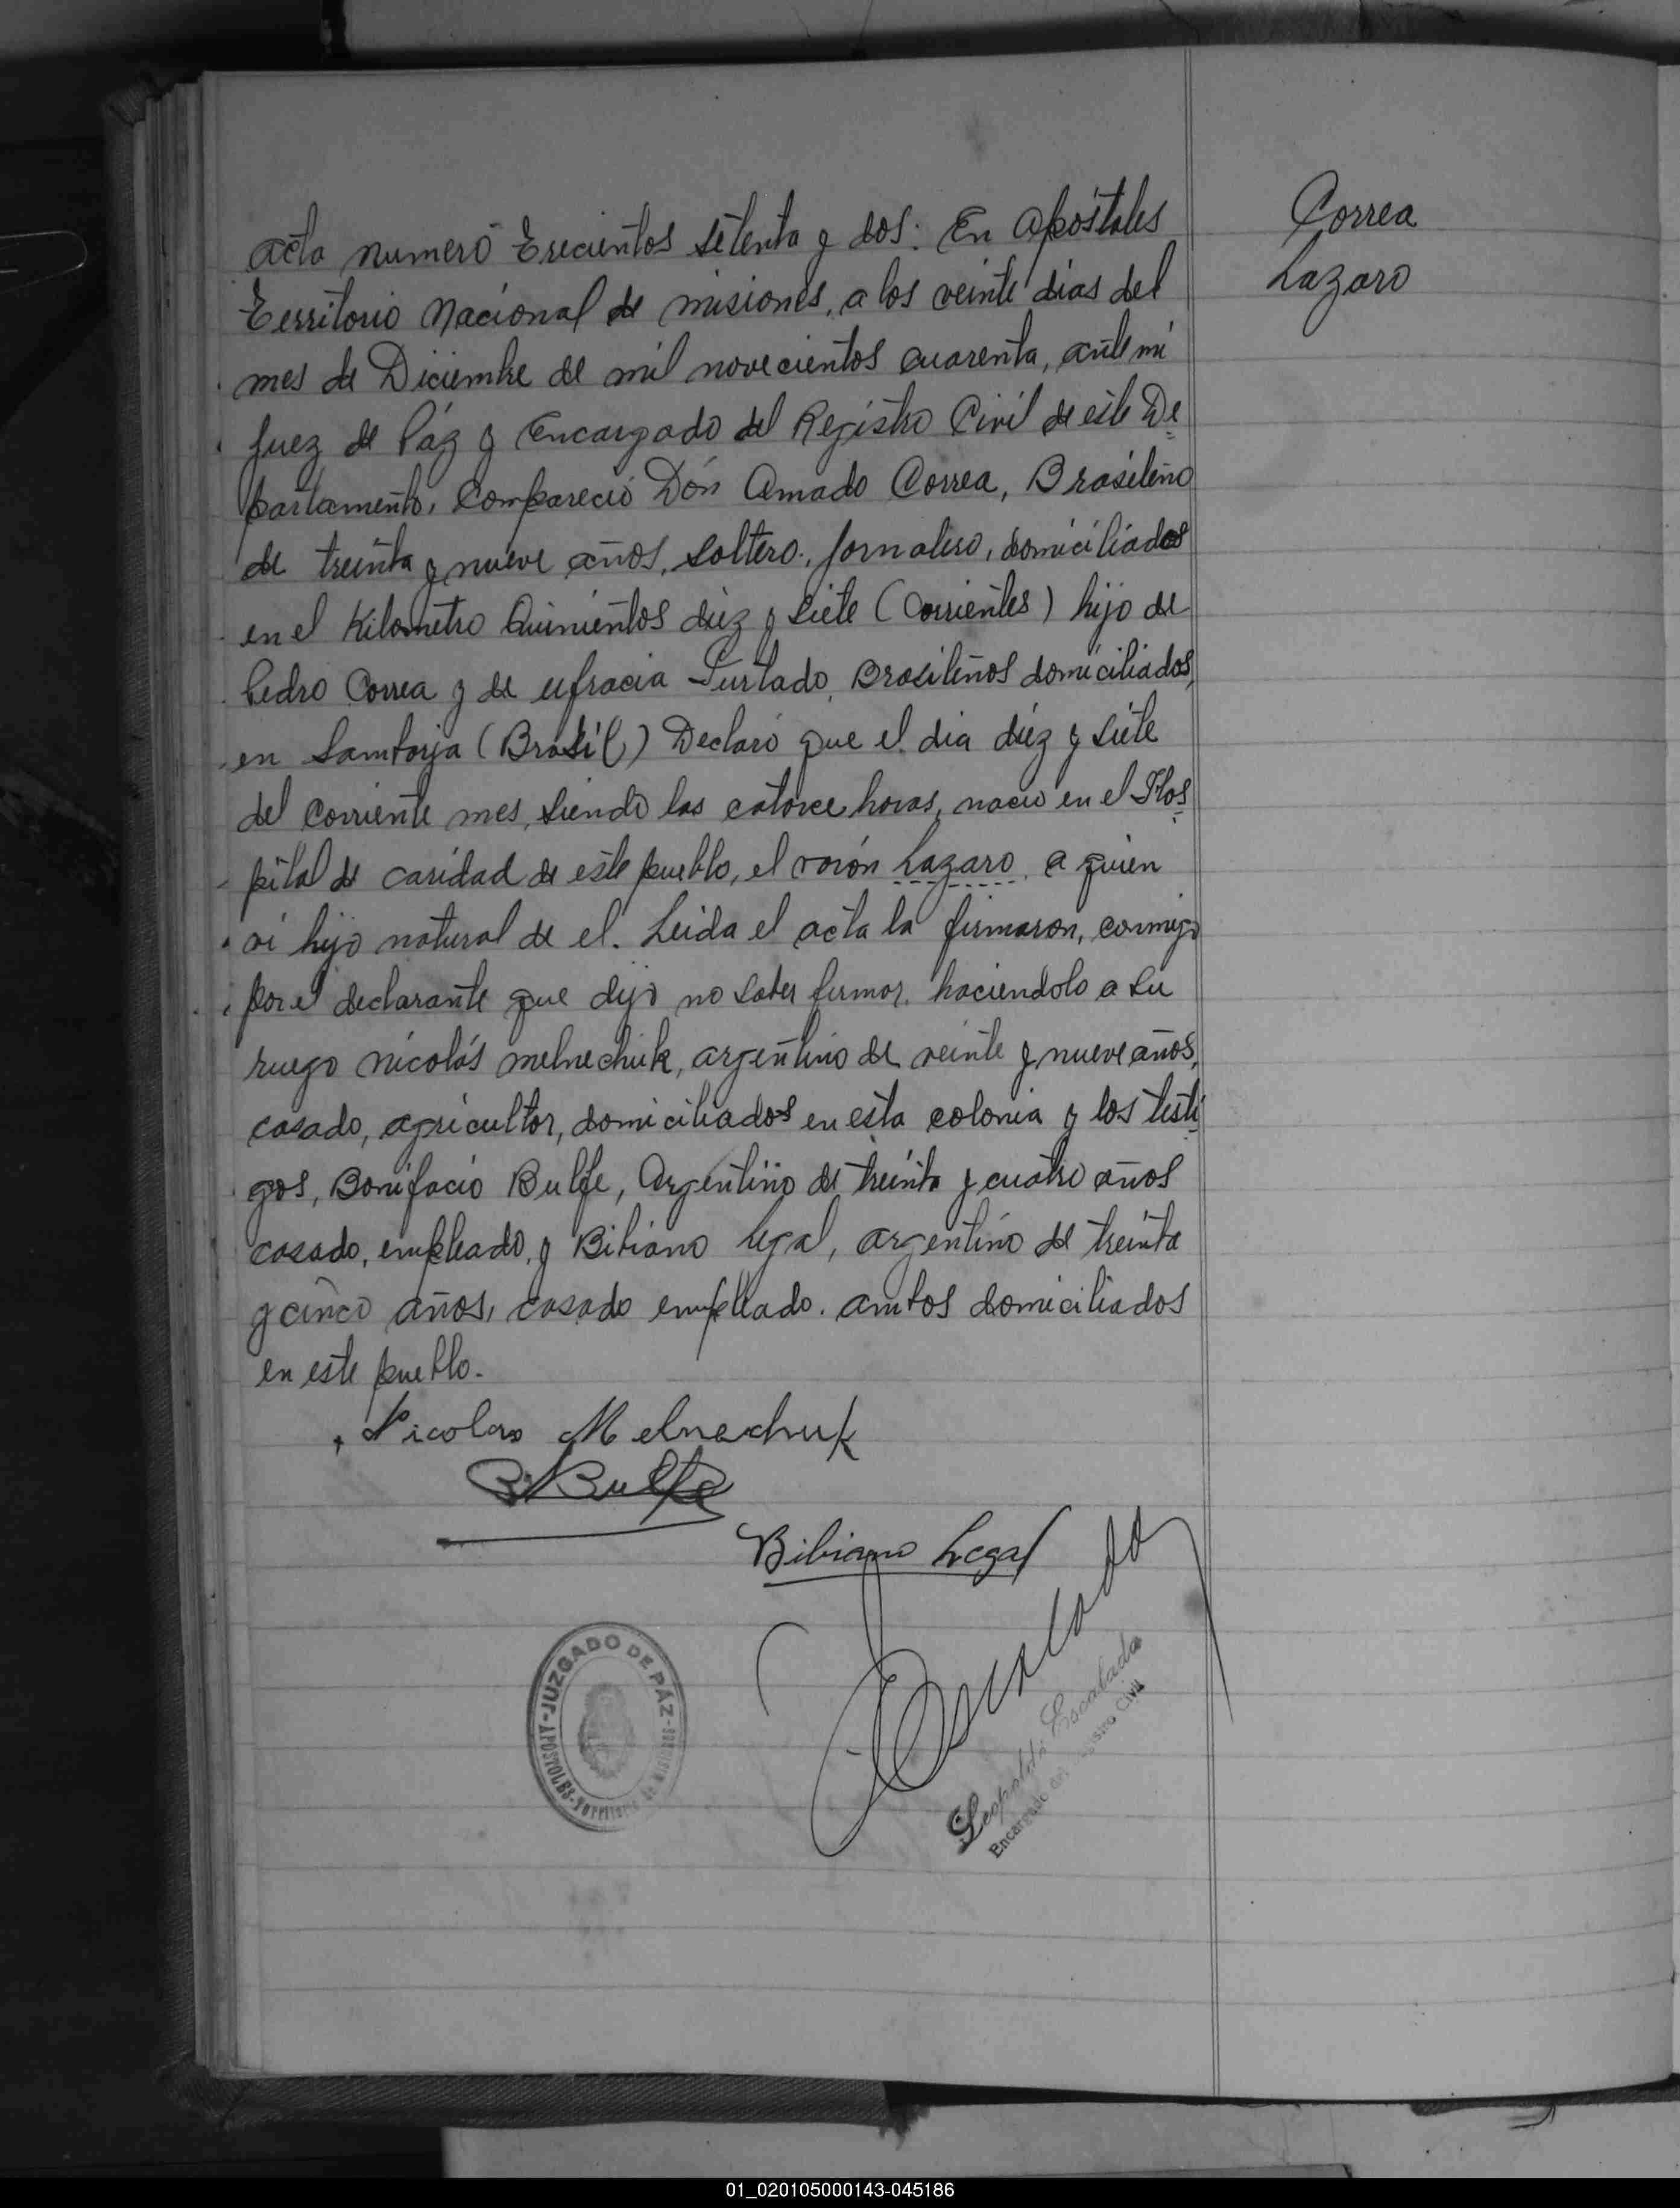 Acta numero Trecientos setenta y dos: En Apóstoles
Territorio Nacional de misiones, a los veinte dias del
mes de Diciembre de mil novecientos cuarenta, ante mi
Juez de Páz y Encargado del Registro Civil de este De=
partamento, Compareció Dón Amado Correa, Brasileño
de treinta y nueve años, soltero, Jornalero, domiciliados
en el Kilometro Quinientos diez y siete (Corrientes) hijo de
Pedro Correa y de eufracia Furtado, Brasileños domiciliados,
en Samborja (Brasil) Declaró que el dia diez y siete
del corriente mes, siendo las catorce horas, nacio en el Hos
pital de caridad de este pueblo, el varón Lazaro, a quien
vi hijo natural de el. Leida el acta la firmaron, conmigo
por el declarante que dijo no saber firmar, haciendolo a su
ruego nicolás melnechuk, argentino de veinte y nueve años,
casado, agricultor, domiciliados en esta colonia y los testi
gos, Bonifacio Bulfe, Argentino de treinta y cuatro años
casado, empleado, y Bibiano Legal, argentino de treinta
y cinco años, casado empleado. ambos domiciliados
en este pueblo.
Correa
Lazaro
Nicolas Melnechuk
B. Bulfe
Bibiano Legal
Escalada
JUZGADO DE PÁZ
APOSTOLES-Territorio de Misiones
Leopoldo Escalada
Encargado del Registro Civil
01_020105000143-045186